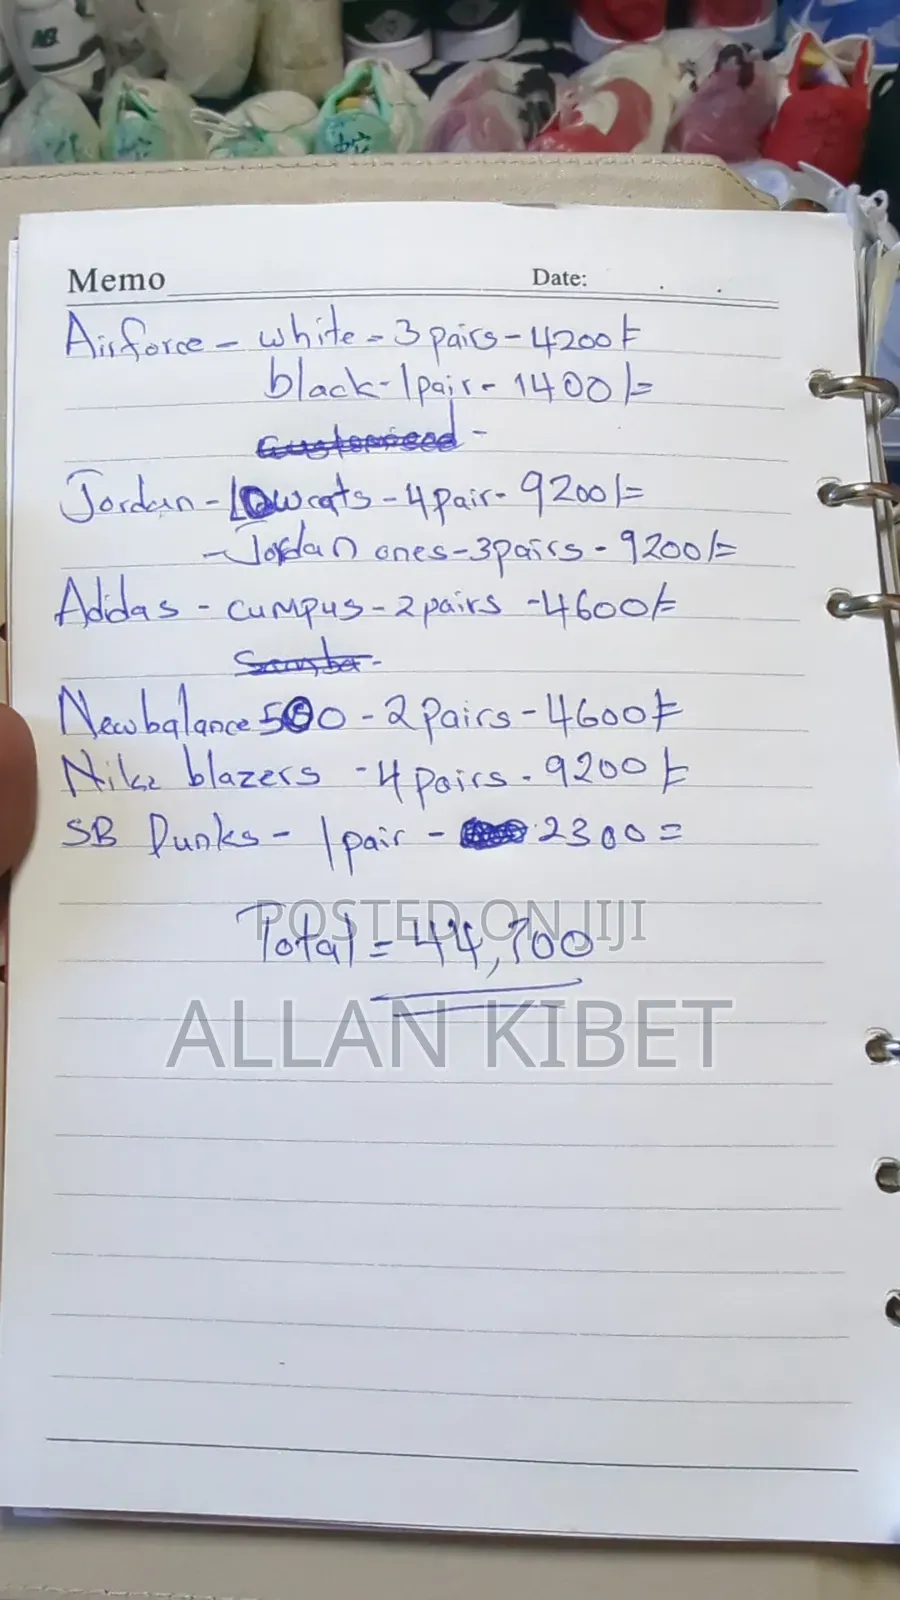 Memo Date: . .
Airforce - white - 3 pairs - 4200/=
black - 1 pair - 1400/=
Customised -
Jordan - Lowcats - 4 pair - 9200/=
- Jordan ones - 3 pairs - 9200/=
Adidas - cumpus - 2 pairs - 4600/=
Samba -
Newbalance 500 - 2 Pairs - 4600/=
Nike blazers - 4 pairs - 9200/=
SB Dunks - 1 pair - 2300=
Total = 44,700
POSTED ON JIJI
ALLAN KIBET